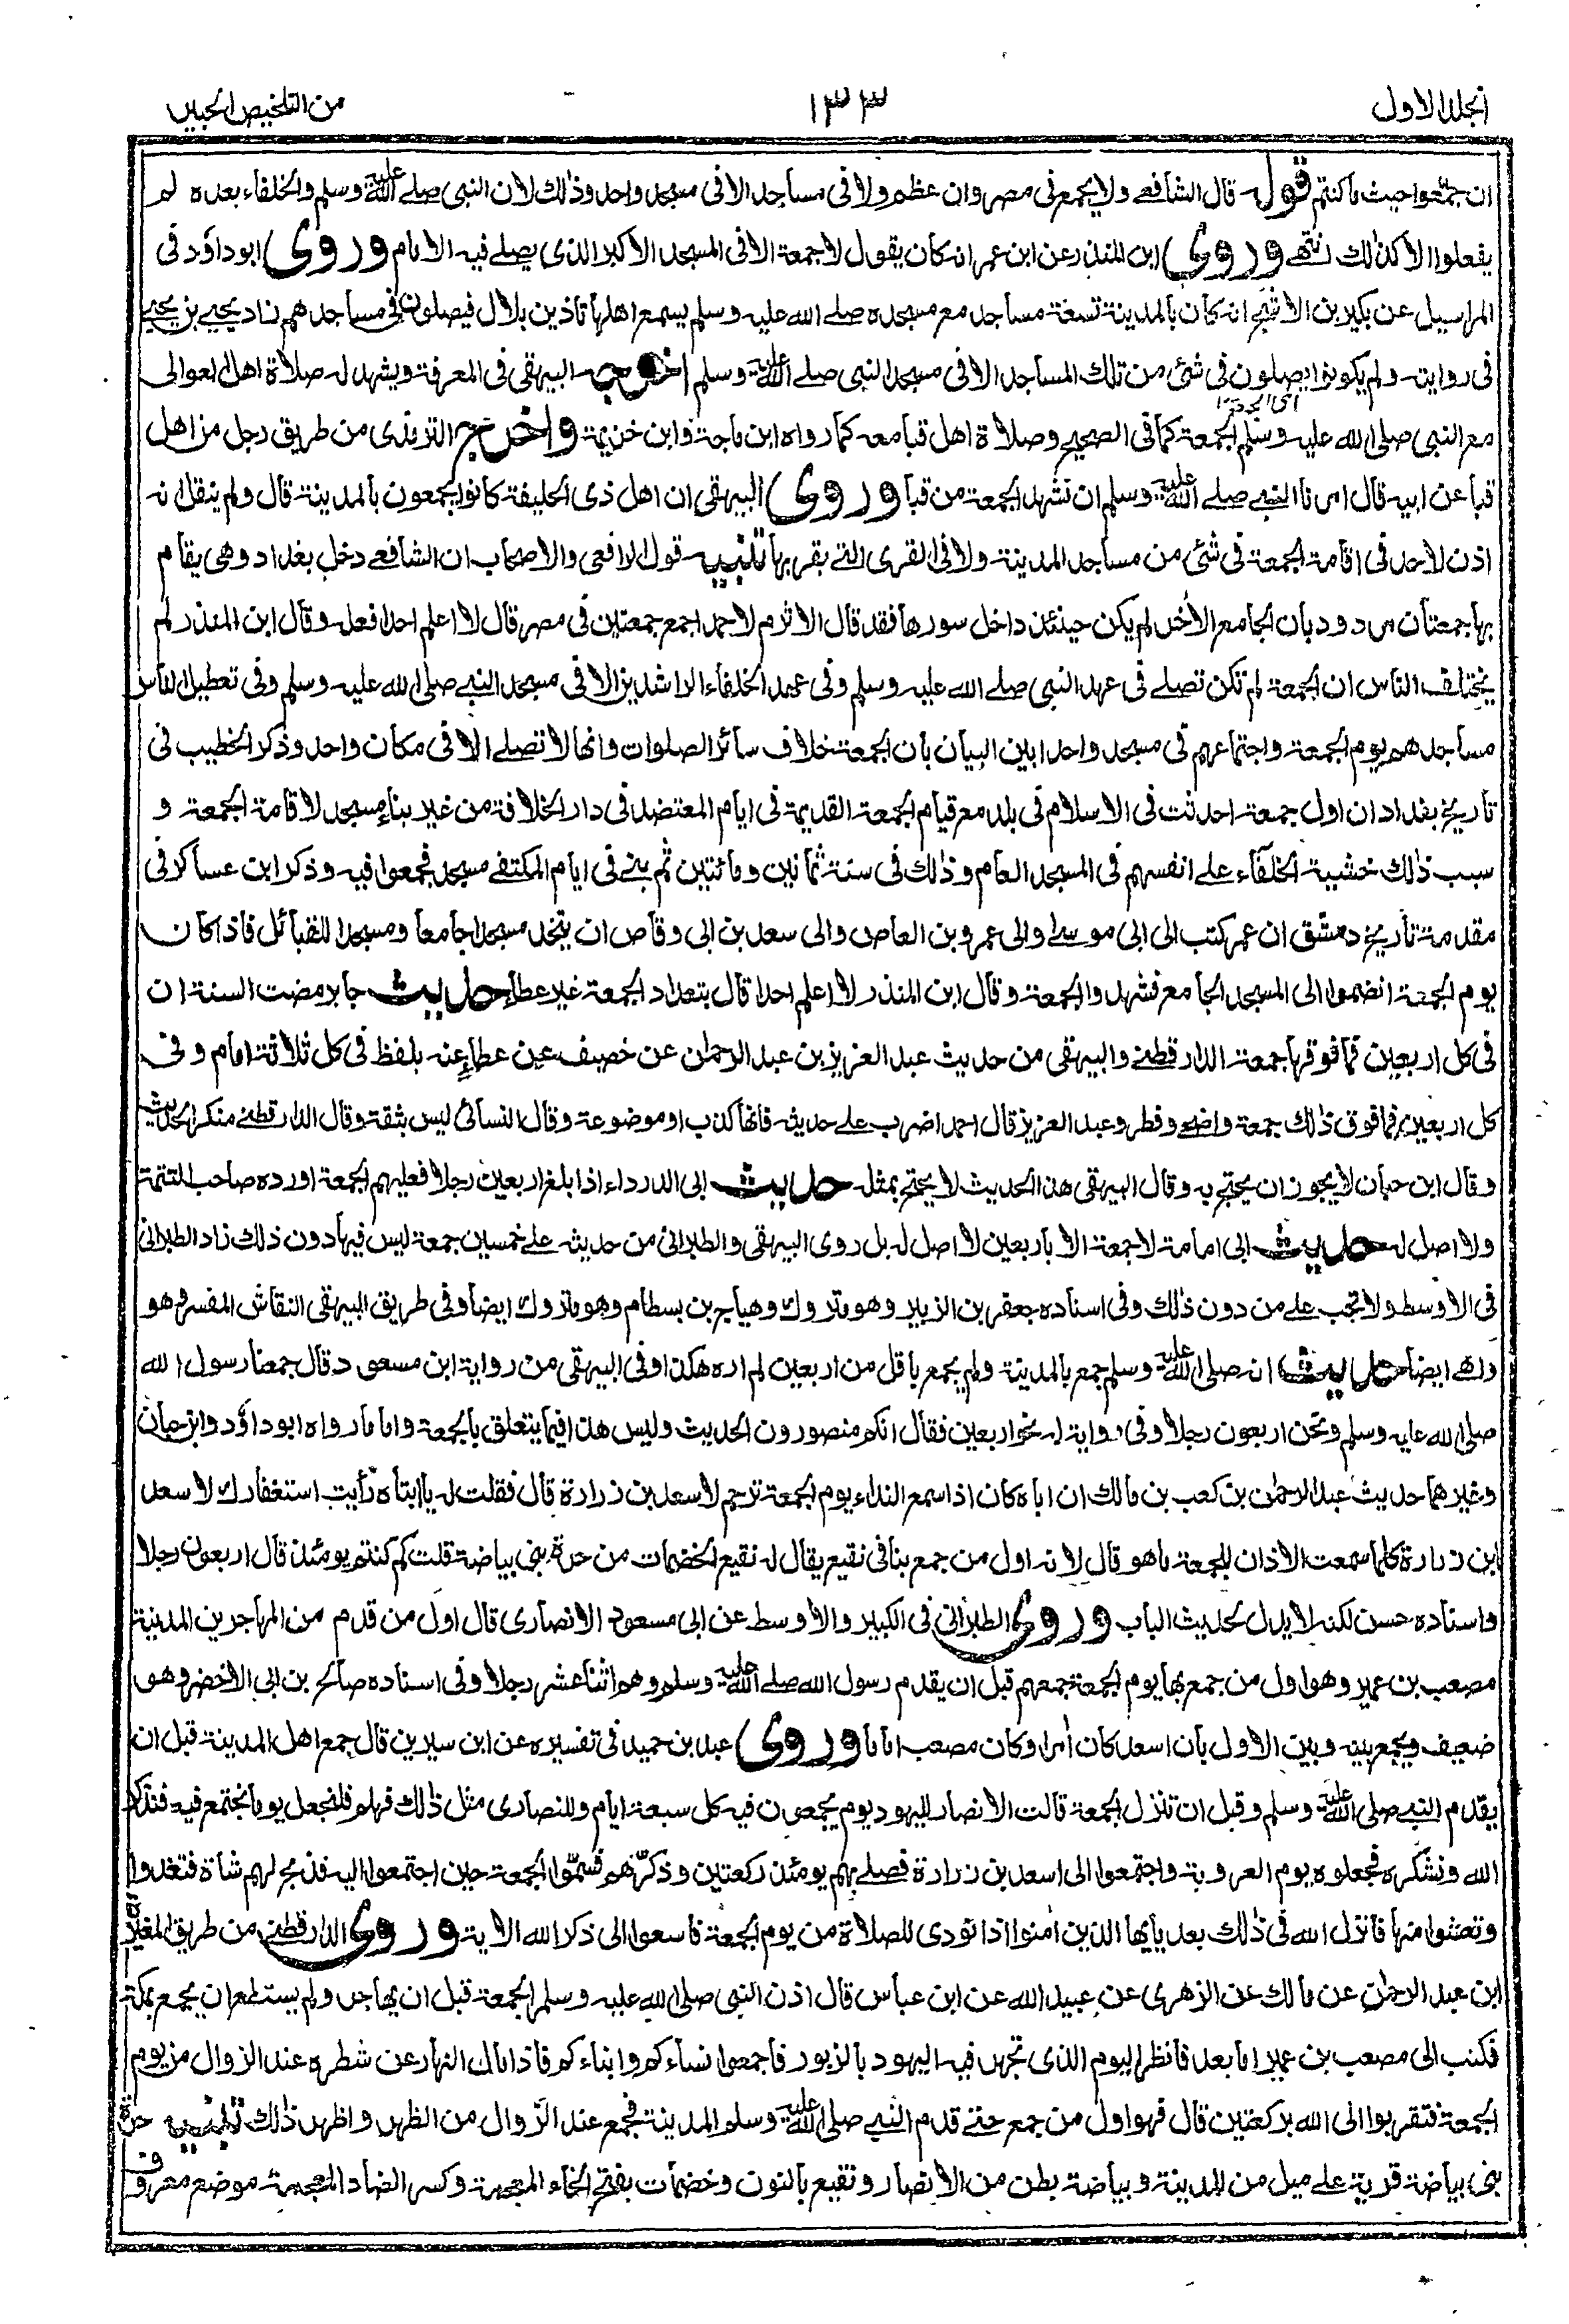 المجلد الاول ١٣٣ من التلخيص الحبير
ان جمعوا حيث ما كنتم قوله قال الشافعے ولا يجمع فى مصر وان عظم ولا فى مساجد الا فى مسجد واحد وذلك لان النبى صلے الله عليه وسلم والخلفاء بعده لم
يفعلوا الا كذلك انتهے وروى ابن المنذر عن ابن عمر انه كان يقول لا جمعة الا فى المسجد الاكبر الذى يصلے فيه الامام وروى ابو داؤد فى
المراسيل عن بكير بن الاشج انه كان بالمدينة تسعة مساجد مع مسجده صلے الله عليه وسلم يسمع اهلها تاذين بلال فيصلون فى مساجدهم زاد يحيے بن يحيے
فى روايته ولم يكونوا يصلون فى شئ من تلك المساجد الا فى مسجد النبى صلے الله عليه وسلم اخرجه البيهقى فى المعرفة ويشهد له صلاة اهل العوالى
مع النبى صلى الله عليه وسلم الجمعة كما فى الصحيح وصلاة اهل قبا معه كما رواه ابن ماجة وابن خزيمة واخرج الترمذى من طريق رجل من اهل
قبا عن ابيه قال امرنا النبے صلے الله عليه وسلم ان نشهد الجمعة من قبا وروى البيهقى ان اهل ذى الحليفة كانوا يجمعون بالمدينة قال ولم ينقل انه
اذن لاحد فى اقامة الجمعة فى شئ من مساجد المدينة ولا فى القرى التے بقربها تنبيه قول الرافعى والاصحاب ان الشافعے دخل بغداد وهى يقام
بها جمعتان مردود بان الجامع الآخر لم يكن حينئذ داخل سورها فقد قال الاثرم لاحمد اجمع جمعتين فى مصر قال لا اعلم احدا فعله وقال ابن المنذر لم
يختلف الناس ان الجمعة لم تكن تصلے فى عهد النبى صلے الله عليه وسلم وفى عهد الخلفاء الراشدين الا فى مسجد النبے صلى الله عليه وسلم وفى تعطيل الناس
مساجدهم يوم الجمعة واجتماعهم فى مسجد واحد ابين البيان بان الجمعة خلاف سائر الصلوات وانها لا تصلے الا فى مكان واحد وذكر الخطيب فى
تاريخ بغداد ان اول جمعة احدثت فى الاسلام فى بلد مع قيام الجمعة القديمة فى ايام المعتضد فى دار الخلافة من غير بناء مسجد لاقامة الجمعة و
سبب ذلك خشية الخلفاء علے انفسهم فى المسجد العام وذلك فى سنة ثمانين ومائتين ثم بنے فى ايام المكتفے مسجد فجمعوا فيه وذكر ابن عساكر فى
مقدمة تاريخ دمشق ان عمر كتب الى ابى موسے والى عمرو بن العاص والى سعد بن ابى وقاص ان يتخذ مسجدا جامعا ومسجدا للقبائل فاذا كان
يوم الجمعة انضموا الى المسجد الجامع فشهدوا الجمعة وقال ابن المنذر لا اعلم احدا قال بتعداد الجمعة غير عطاء حديث جابر مضت السنة ان
فى كل اربعين فما فوقها جمعة الدارقطنے والبيهقى من حديث عبد العزيز بن عبد الرحمٰن عن خصيف عن عطاء عنه بلفظ فى كل ثلاثة امام وفى
كل اربعين فما فوق ذلك جمعة واضحے وفطر وعبد العزيز قال احمد اضرب علے حديثه فانها كذب او موضوعة وقال النسائى ليس بثقة وقال الدارقطنے منكر الحديث
وقال ابن حبان لا يجوز ان يحتج به وقال البيهقى هذا الحديث لا يحتج بمثله حديث ابى الدرداء اذا بلغ اربعين رجلا فعليهم الجمعة اورده صاحب التتمة
ولا اصل له حديث ابى امامة لا جمعة الا باربعين لا اصل له بل روى البيهقى والطبرانى من حديثه علے خمسين جمعة ليس فيها دون ذلك زاد الطبرانى
فى الاوسط ولا تجب علے من دون ذلك وفى اسناده جعفر بن الزبير وهو متروك وهياج بن بسطام وهو متروك ايضا وفى طريق البيهقى النقاش المفسر وهو
واهے ايضا حديث انه صلى الله عليه وسلم جمع بالمدينة ولم يجمع باقل من اربعين لم اره هكذا وفى البيهقى من رواية ابن مسعود قال جمعنا رسول الله
صلى الله عليه وسلم ونحن اربعون رجلا وفى رواية له نحو اربعين فقال انكم منصورون الحديث وليس هذا فيما يتعلق بالجمعة واما ما رواه ابو داؤد وابن حبان
وغيرهما حديث عبد الرحمٰن بن كعب بن مالك ان اباه كان اذا سمع النداء يوم الجمعة ترحم لاسعد بن زرارة قال فقلت له يا ابتاه رأيت استغفارك لاسعد
ابن زرارة كلما سمعت الاذان للجمعة ما هو قال لانه اول من جمع بنا فى نقيع يقال له نقيع الخضمات من حرة بنى بياضة قلت كم كنتم يومئذ قال اربعون رجلا
واسناده حسن لكنه لا يدل لحديث الباب وروى الطبرانى فى الكبير والاوسط عن ابى مسعود الانصارى قال اول من قدم من المهاجرين المدينة
مصعب بن عمير وهو اول من جمع بها يوم الجمعة جمعهم قبل ان يقدم رسول الله صلے الله عليه وسلم وهم اثنا عشر رجلا وفى اسناده صالح بن ابى الاخضر وهو
ضعيف ويجمع بينه وبين الاول بان اسعد كان أمرا وكان مصعب اماما وروى عبد بن حميد فى تفسيره عن ابن سيرين قال جمع اهل المدينة قبل ان
يقدم النبے صلى الله عليه وسلم وقبل ان تنزل الجمعة قالت الانصار لليهود يوم يجمعون فيه كل سبعة ايام وللنصارى مثل ذلك فهلم فلنجعل يوما نجتمع فيه فنذكر
الله ونشكره فجعلوه يوم العروبة واجتمعوا الى اسعد بن زرارة فصلے بهم يومئذ ركعتين وذكّرهم فسمّوا الجمعة حين اجتمعوا اليه فذبح لهم شاة فتغدوا
وتعشوا منها فانزل الله فى ذلك بعد يأيها الذين امنوا اذا نودى للصلاة من يوم الجمعة فاسعوا الى ذكر الله الاية وروى الدارقطنے من طريق المغيرة
ابن عبد الرحمٰن عن مالك عن الزهرى عن عبيد الله عن ابن عباس قال اذن النبى صلى الله عليه وسلم الجمعة قبل ان يهاجر ولم يستطع ان يجمع بمكة
فكتب الى مصعب بن عمير اما بعد فانظر اليوم الذى تجهر فيه اليهود بالزبور فاجمعوا نساءكم وابناءكم فاذا مال النهار عن شطره عند الزوال من يوم
الجمعة فتقربوا الى الله بركعتين قال فهو اول من جمع حتے قدم النبے صلى الله عليه وسلم المدينة فجمع عند الزوال من الظهر واظهر ذلك تنبيه حرة
بنى بياضة قرية علے ميل من المدينة وبياضة بطن من الانصار ونقيع بالنون وخضمات بفتح الخاء المعجمة وكسر الضاد المعجمة موضع معروف